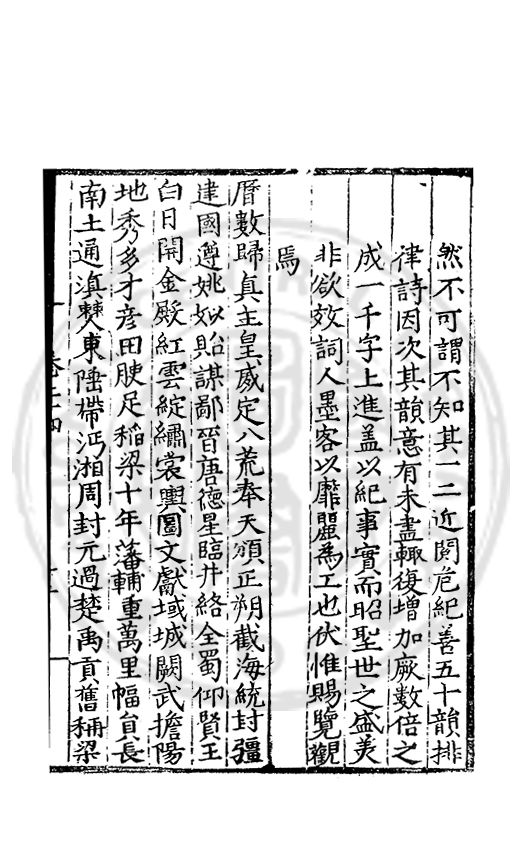 然不可謂不知其一二近閱危紀善五十韻排
律詩因次其韻意有未盡輒復增加厥數倍之
成一千字上進盖以紀事實而昭聖世之盛美
非欲效詞人墨客以靡麗為工也伏惟賜覽觀
焉
曆數歸真主皇威定八荒奉天頒正朔截海統封疆
建國遵姚姒貽謀鄙晉唐德星臨井絡全蜀仰賢王
白日開金殿紅雲綻繡裳輿圖文獻域城闕武擔陽
地秀多才彥田腴足稻梁十年藩輔重萬里幅員長
南土通滇僰東陲帶沔湘周封元過楚禹貢舊稱梁
卷二十四